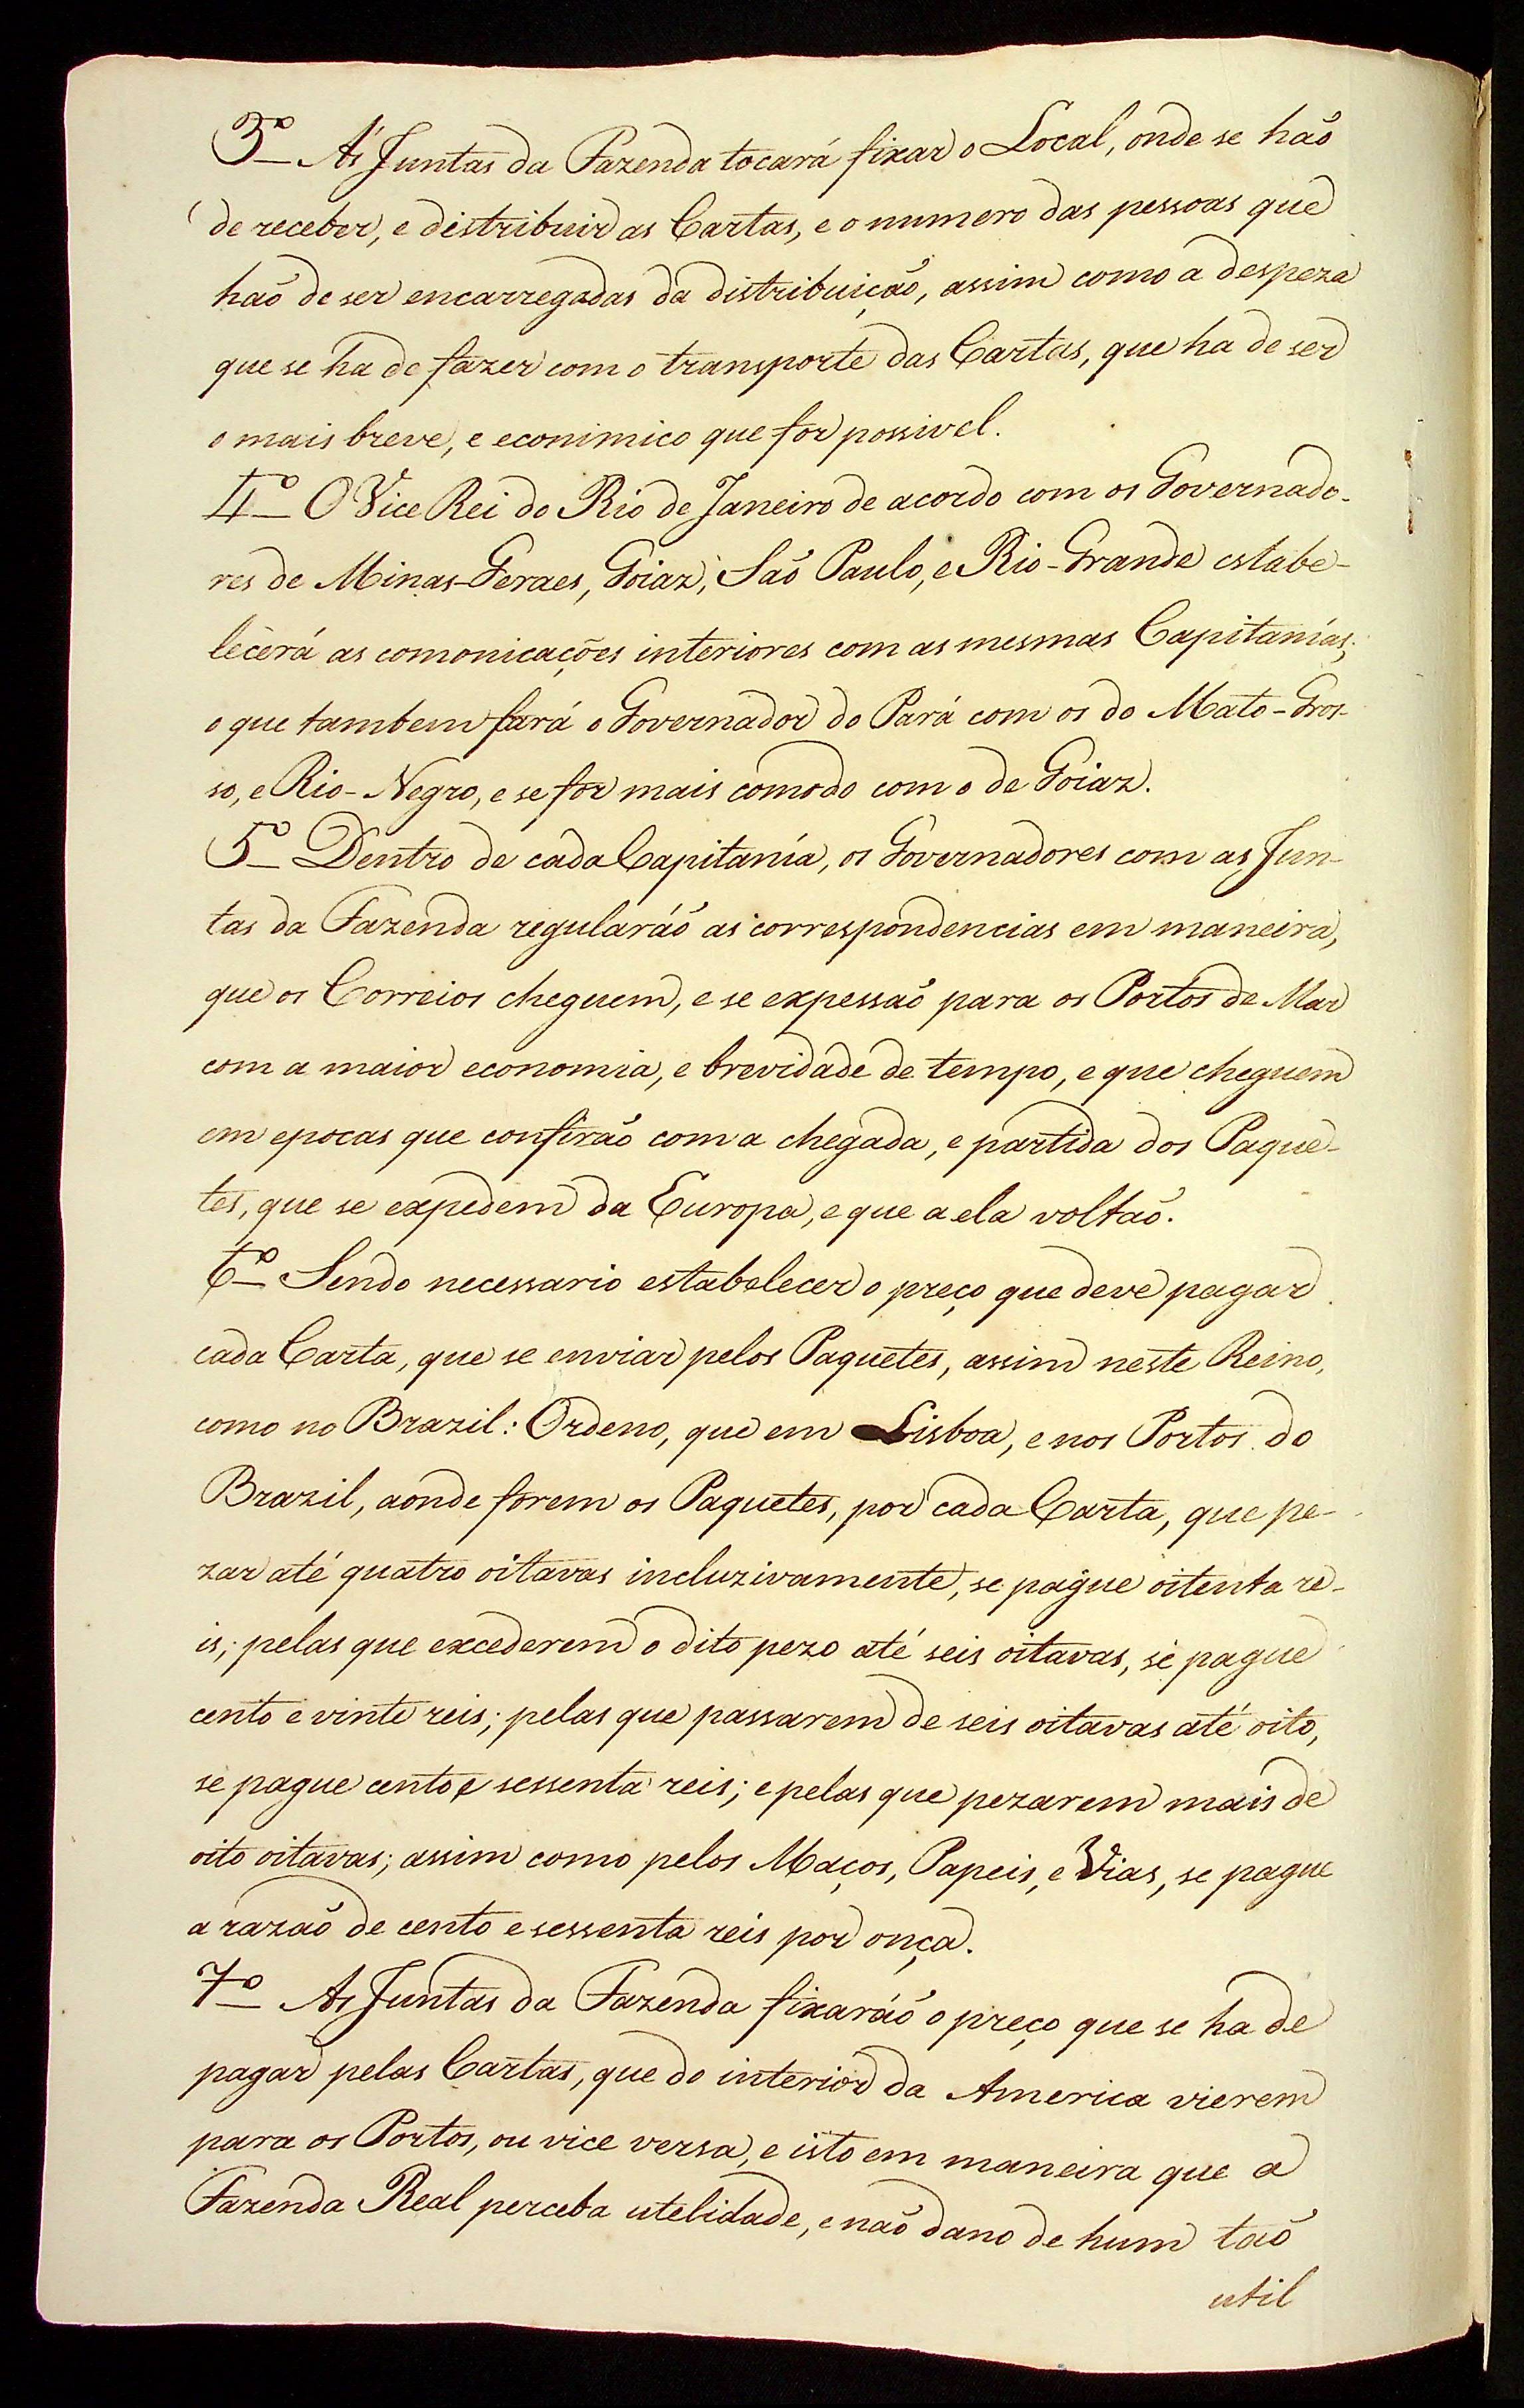 3º Ás Juntas da Fazenda tocará fixar o Local, onde se hão
de receber, e distribuir as Cartas, e o numero das pessoas que
hão de ser encarregadas da distribuição, assim como a despeza
que se ha de fazer com o transporte das Cartas, que ha de ser
o mais breve, e econimico que for possivel.
4º O Vice Rei do Rio de Janeiro de acordo com os Governado-
res de Minas-Geraes, Goiaz, São Paulo, e Rio-Grande estabe-
lecerá as comonicações interiores com as mesmas Capitanías;
o que tambem fará o Governador do Pará com os do Mato-Gros-
so, e Rio-Negro, e se for mais comodo com o de Goiaz.
5º Dentro de cada Capitanía, os Governadores com as Jun-
tas da Fazenda regularáõ as correspondencias em maneira,
que os Correios cheguem, e se expessão para os Portos de Mar
com a maior economia, e brevidade de tempo, e que cheguem
em epocas que confirão com a chegada, e partida dos Paque-
tes, que se expedem da Europa, e que a ela voltão.
6º Sendo necessario estabelecer o preço que deve pagar
cada Carta, que se enviar pelos Paquetes, assim neste Reino,
como no Brazil: Ordeno, que em Lisboa, e nos Portos do
Brazil, aonde forem os Paquetes, por cada Carta, que pe-
zar até quatro oitavas incluzivamente, se pague oitenta re-
is; pelas que excederem o dito pezo até seis oitavas, se pague
cento e vinte reis; pelas que passarem de seis oitavas até oito,
se pague cento e sessenta reis; e pelas que pezarem mais de
oito oitavas; assim como pelos Maços, Papeis, e Vias, se pague
a razão de cento e sessenta reis por onça.
7º As Juntas da Fazenda fixaráõ o preço que se ha de
pagar pelas Cartas, que do interior da America vierem
para os Portos, ou vice versa, e isto em maneira que a
Fazenda Real perceba utelidade, e não dano de hum tão
util